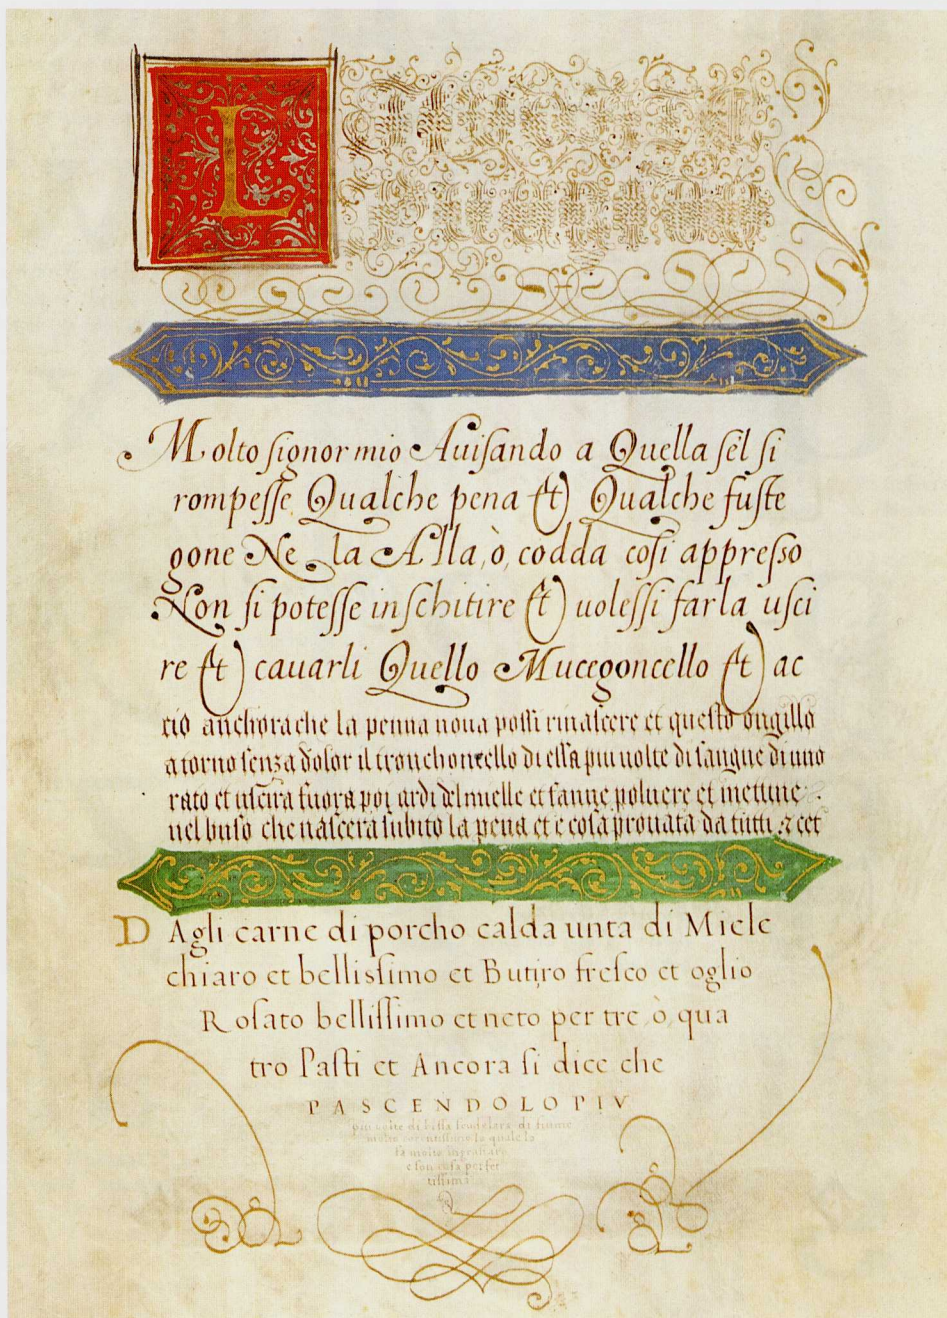 L
Molto ſignor mio Auiſando a Quella ſel ſi
rompeſſe Qualche pena et Qualche fuſte
gone Ne la Alla, ò, codda coſi appreſſo
Non ſi poteſſe inſchitire et uoleſſi farla uſci
re et cauarli Quello Mucegoncello et ac
ciò anchora che la penna noua poſſi rinaſcere et queſto ongillo
atorno ſenza dolor il tronchoncello di eſſa piu uolte di ſangue di
rato et uſcira fuora poi ardi del muelle et fanne poluere et mettine
nel buſo che naſcera ſubito la pena et e coſa prouata da tutti & cet
D Agli carne di porcho calda unta di Miele
chiaro et belliſſimo et Butiro freſco et oglio
Roſato belliſſimo et neto per tre, ò, qua
tro Paſti et Ancora ſi dice che
PASCENDOLO PIV
piu uolte di biſſa ſcudelara di fiume
molto corentiſſimo la quale la
fa molto
e ſon coſa perfet
tiſſima